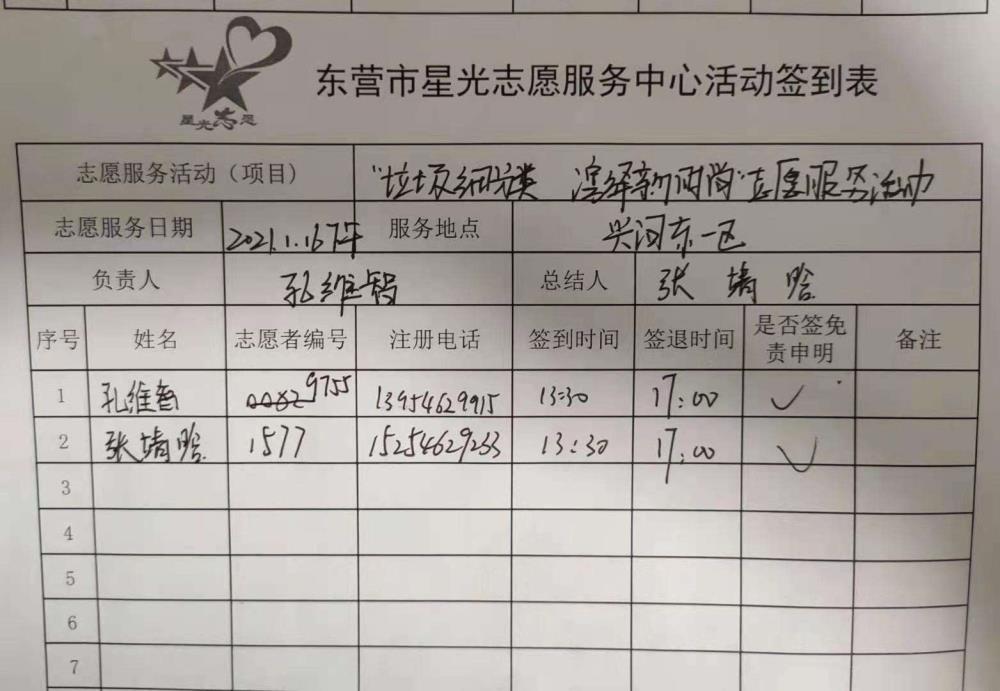 星光志愿
东营市星光志愿服务中心活动签到表
志愿服务活动（项目） "垃圾细分类 演绎新时尚"志愿服务活动
志愿服务日期 2021.1.16下午 服务地点 兴河东一区
负责人 孔维智 总结人 张婧晗
序号 姓名 志愿者编号 注册电话 签到时间 签退时间 是否签免责申明 备注
1 孔维智 9755 13954629915 13:30 17:00 ✓
2 张婧晗 1577 15254629233 13:30 17:00 ✓
3
4
5
6
7